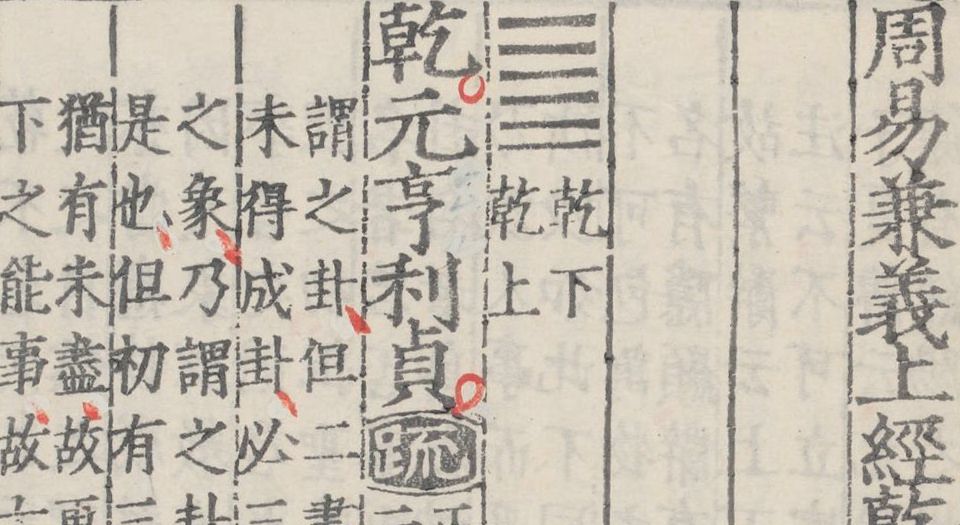 周易兼義上經乾
乾下
乾上
乾元亨利貞疏
謂之卦但二畫
未得成卦必三
之象乃謂之卦
是也但初有三
猶有未盡故更
下之能事故